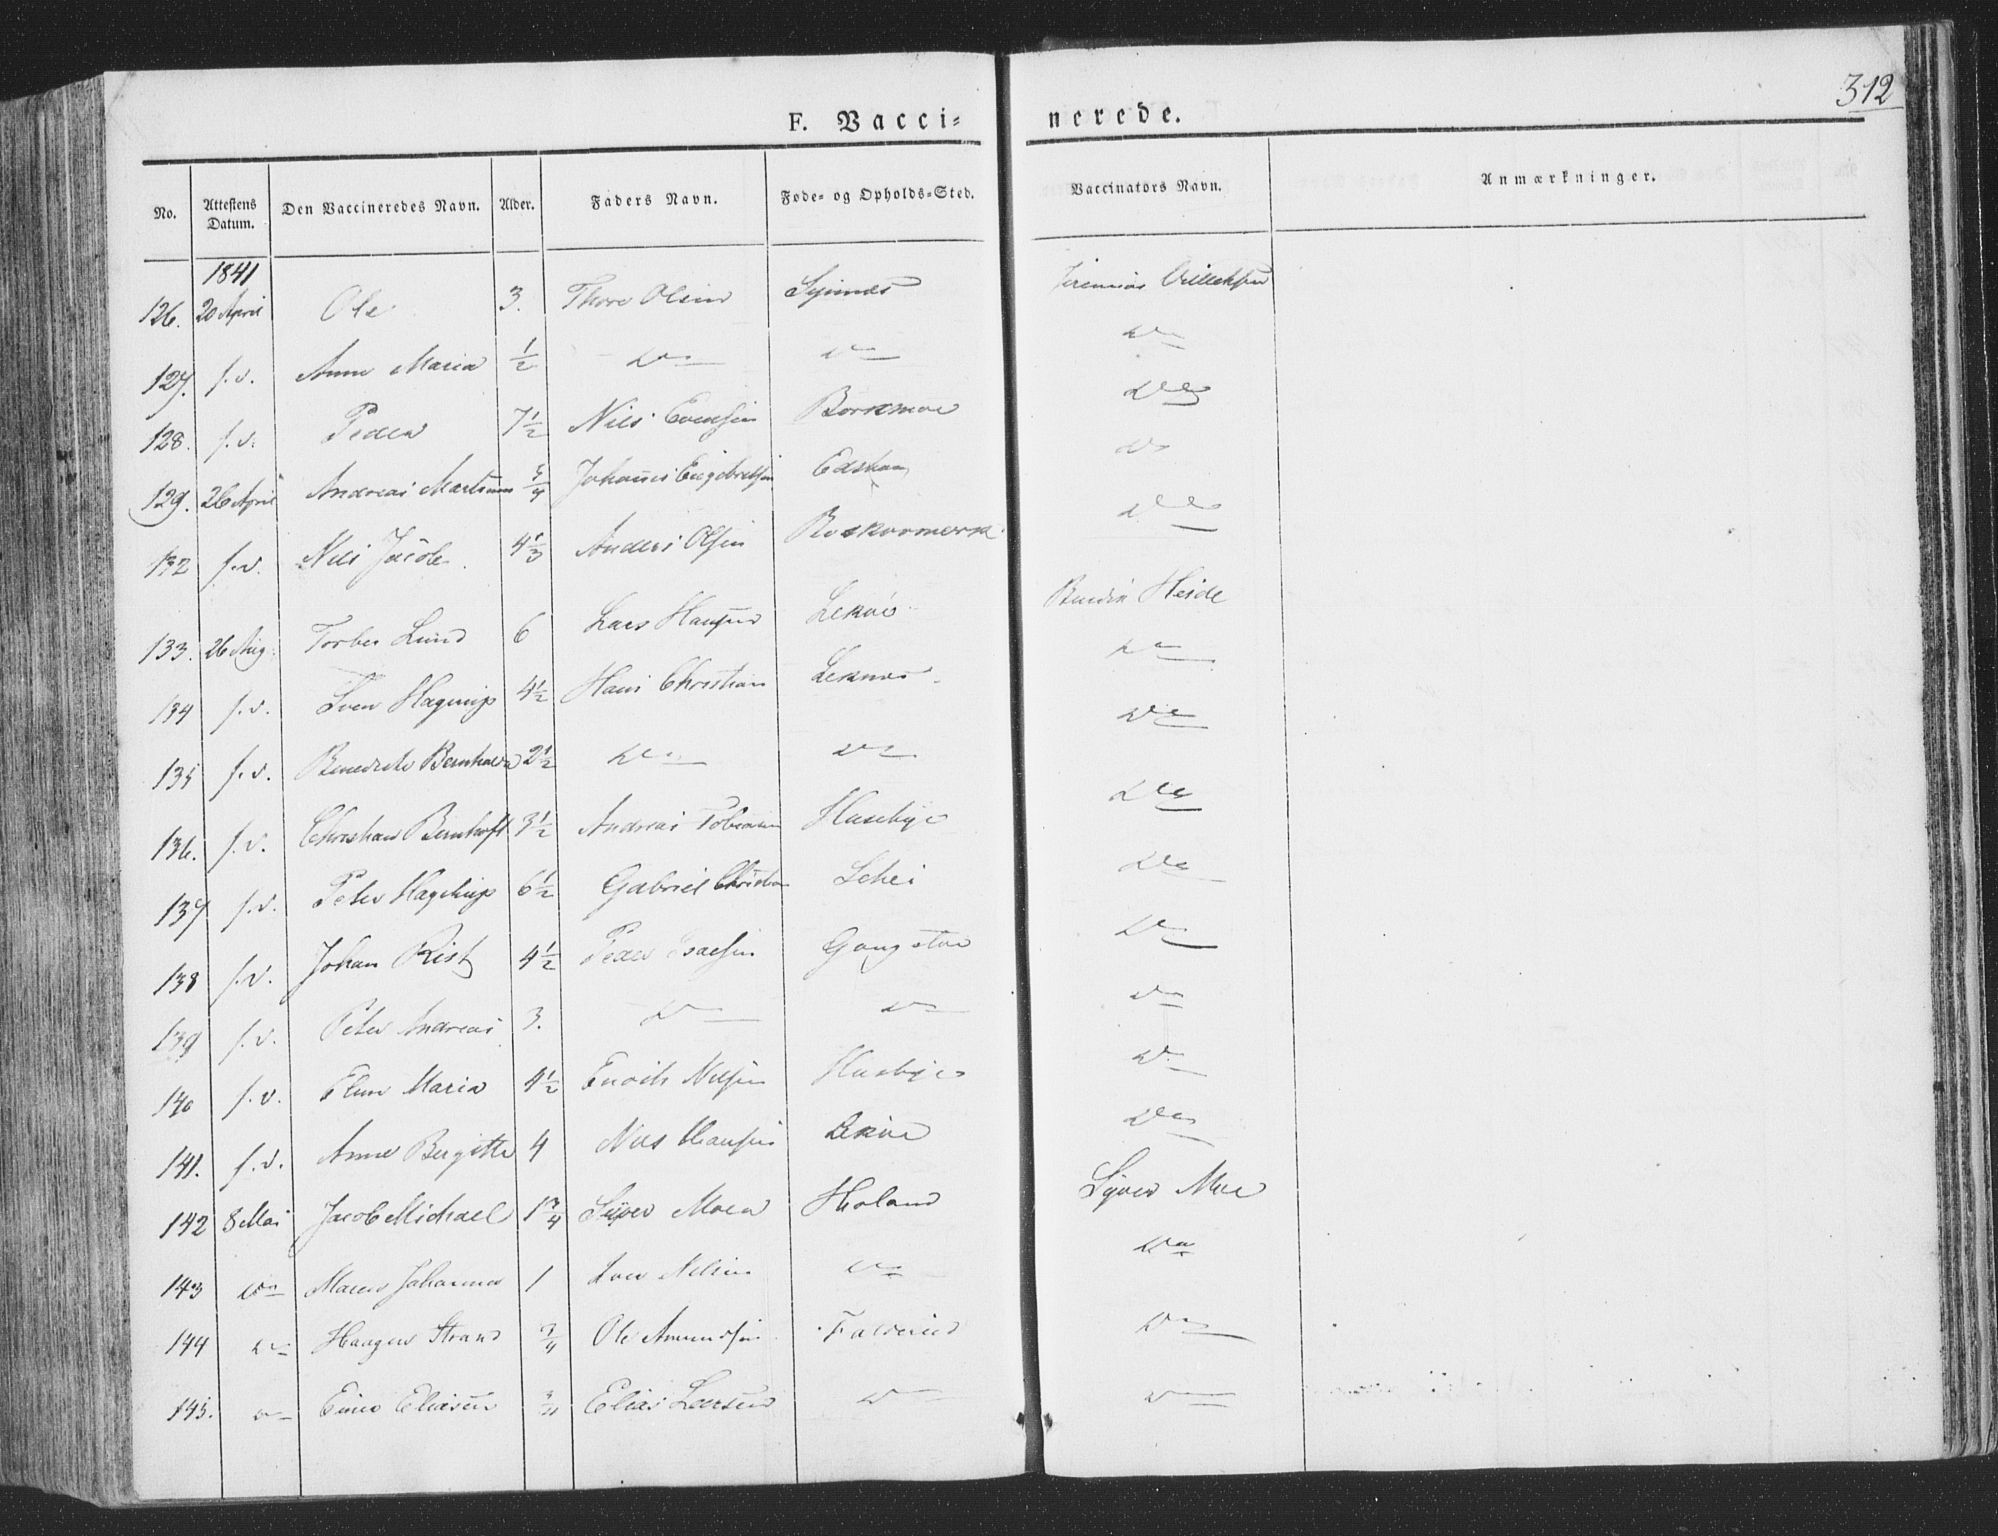 312
F. Vacci= nerede.
No. Attestens Datum. Den Vaccineredes Navn. Alder. Faders Navn. Føde- og Opholds=Sted. Vaccinators Navn. Anmærkninger.
1841
126. 20 April Ole 3. Thore Olsen
127. f. v. Anne Maria 1/2 do do do
128. f. v. Peder 7 1/2 Nils Evensen Borkmoe do
129. 26 April Andreas 3/4 Johannes Engebretsen do
132 f. v. Nils Jacob 4 1/3 Anders Olsen do
133. 26 Aug. Torber Lund 6 Lars Hansen Lekøe Heide
134 f. v. Sven Hagerup 4 1/2 Hans Christian Leknes do
135 f. v. 2 1/2 do do do
136. f. v. Christian Bernhoft 3 1/2 Andreas Tobiasen Husebye do
137 f. v. Peter Hagerup 6 1/2 Gabriel Christian Schei do
138 f. v. Johan Rist 4 1/2 Peder Isacsen Gangstøe do
139 f. v. Peter Andreas 3. do do do
140 f. v. Elen Maria 4 1/2 Enoch Nilsen Husebye do
141. f. v. Anne Bergitte 4 Nils Hansen Lekøe do
142 8 Mai Jacob Michael 1 3/4 Syver Moen Horland Syver Moe
143 do Maren Johanna 1 Iver Nilsen do do
144 do Haagen Strand 3/4 Ole Amundsen do
145. do Eliasen 3/4 Elias Larsen do do